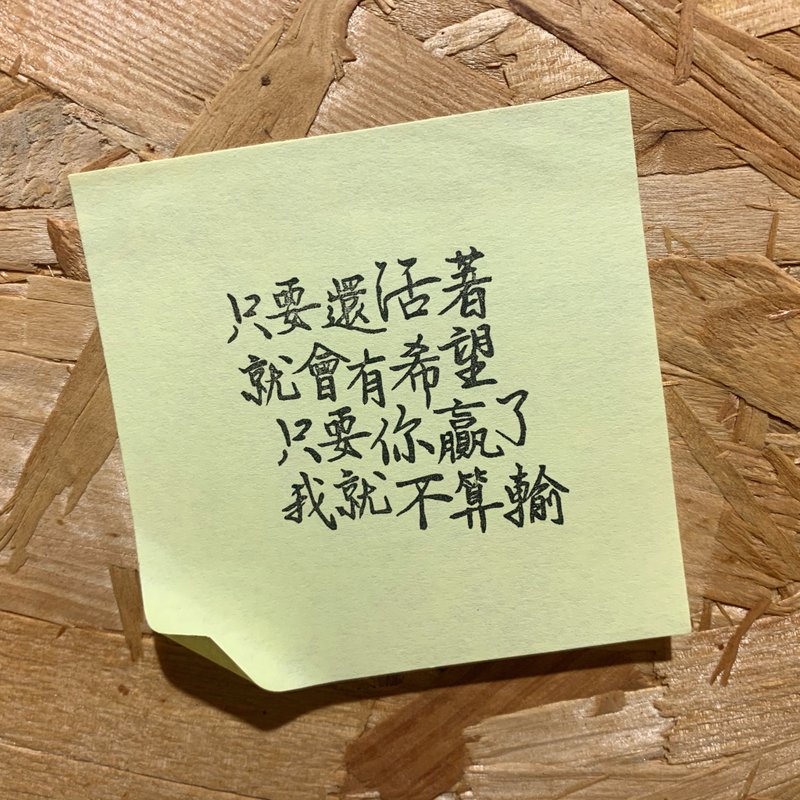 只要還活著
就會有希望
只要你贏了
我就不算輸